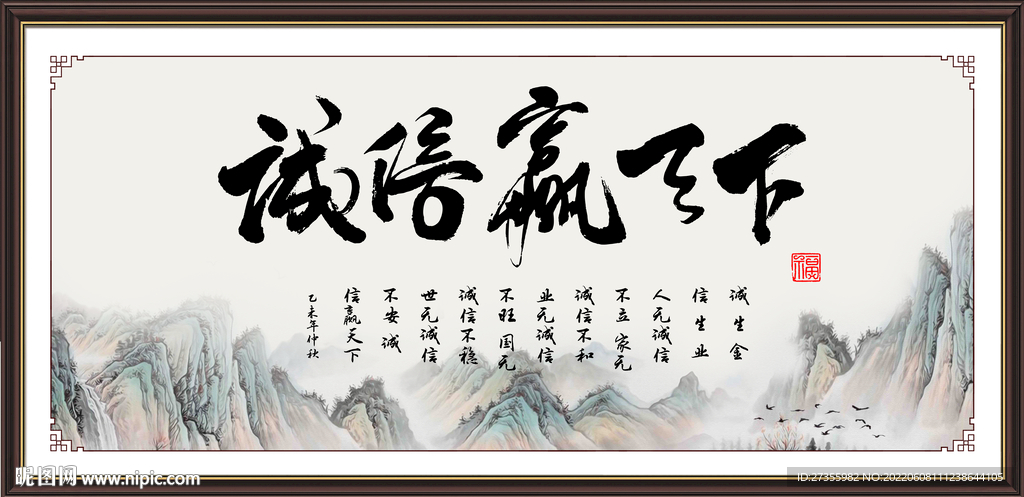 誠信赢天下
福
诚生金
信生业
人无诚信
不立家无
诚信不和
业无诚信
不旺国无
诚信不稳
世无诚信
不安诚
信赢天下
乙未年仲秋
昵图网 www.nipic.com
ID:27355982 NO:20220608111238644105